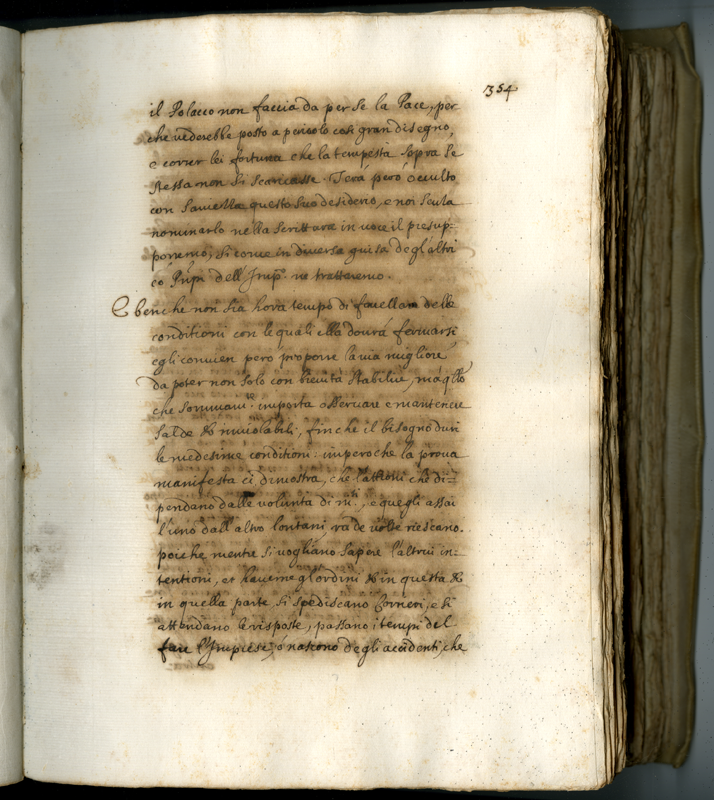 354
il Polacco non faccia da per se la Pace, per
che vederebbe posto a pericolo così gran disegno,
e correr lei fortuna che la tempesta sopra se
stessa non si scaricasse. Terà però occulto
con saviezza questo suo desiderio, e noi senza
nominarlo nella Scrittura in voce il presup-
porremo, si come in diversa guisa degl'altri
co' Pnpi dell'Impo. ne tratteremo.
E benche non sia hora tempo di favellar delle
conditioni con le quali ella dourà fermarsi
egli convien però proporre la via migliore
da poter non solo con brevità stabilire, mà qllo
che sommamte. importa osservare e mantenere
salde & inviolabili, finche il bisogno duri
le medesime conditioni: imperoche la prova
manifesta ci dimostra, che l'attioni che di-
pendano dalle volunta di mti., e quegli assai
l'uno dall'altro lontani, rade volte riescano.
poiche mentre si vogliano sapere l'altrui in-
tentioni, et haverne gl'ordini & in questa &
in quella parte si spediscano Corrieri, e si
attendano le risposte, passano i tempi del
fare l'Imprese, ó nascono degli accidenti, che